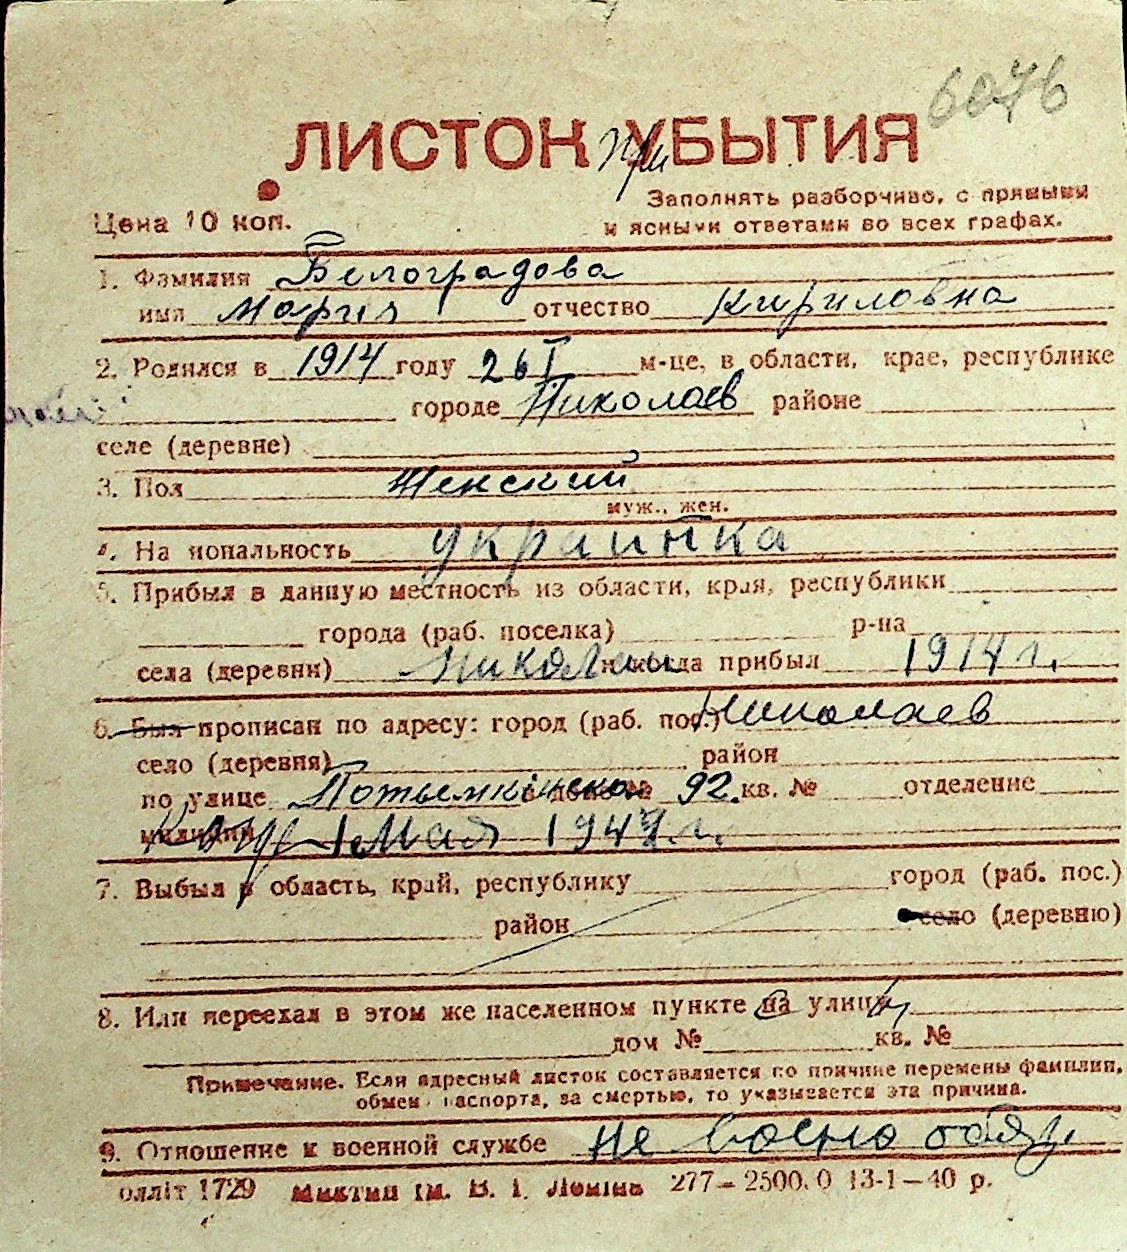 6076
ЛИСТОК При УБЫТИЯ
Заполнять разборчиво, с прямыми
Цена 10 коп.
и ясными ответами во всех графах.
1. Фамилия Белоградова
имя Мария отчество Кириловна
2. Родился в 1914 году 26 I м-це, в области, крае, республике
городе Николаев районе
селе (деревне)
3. Пол Женский
муж., жен.
4. Национальность украинка
5. Прибыл в данную местность из области, края, республики
города (раб. поселка) р-на
села (деревни) Николаев и когда прибыл 1914 г.
6. Был прописан по адресу: город (раб. пос.) Николаев
село (деревня) район
по улице Потьемкинско дом № 92. кв. № отделение
милиции 1 Мая 1944 г.
7. Выбыл в область, край, республику город (раб. пос.)
район село (деревню)
8. Или переехал в этом же населенном пункте на улицу
дом № кв. №
Примечание. Если адресный листок составляется по причине перемены фамилии,
обмен паспорта, за смертью, то указывается эта причина.
9. Отношение к военной службе не военно обяз.
олліт 1729 Миктип ім. В. І. Леніна 277–2500.0 13-1–40 р.